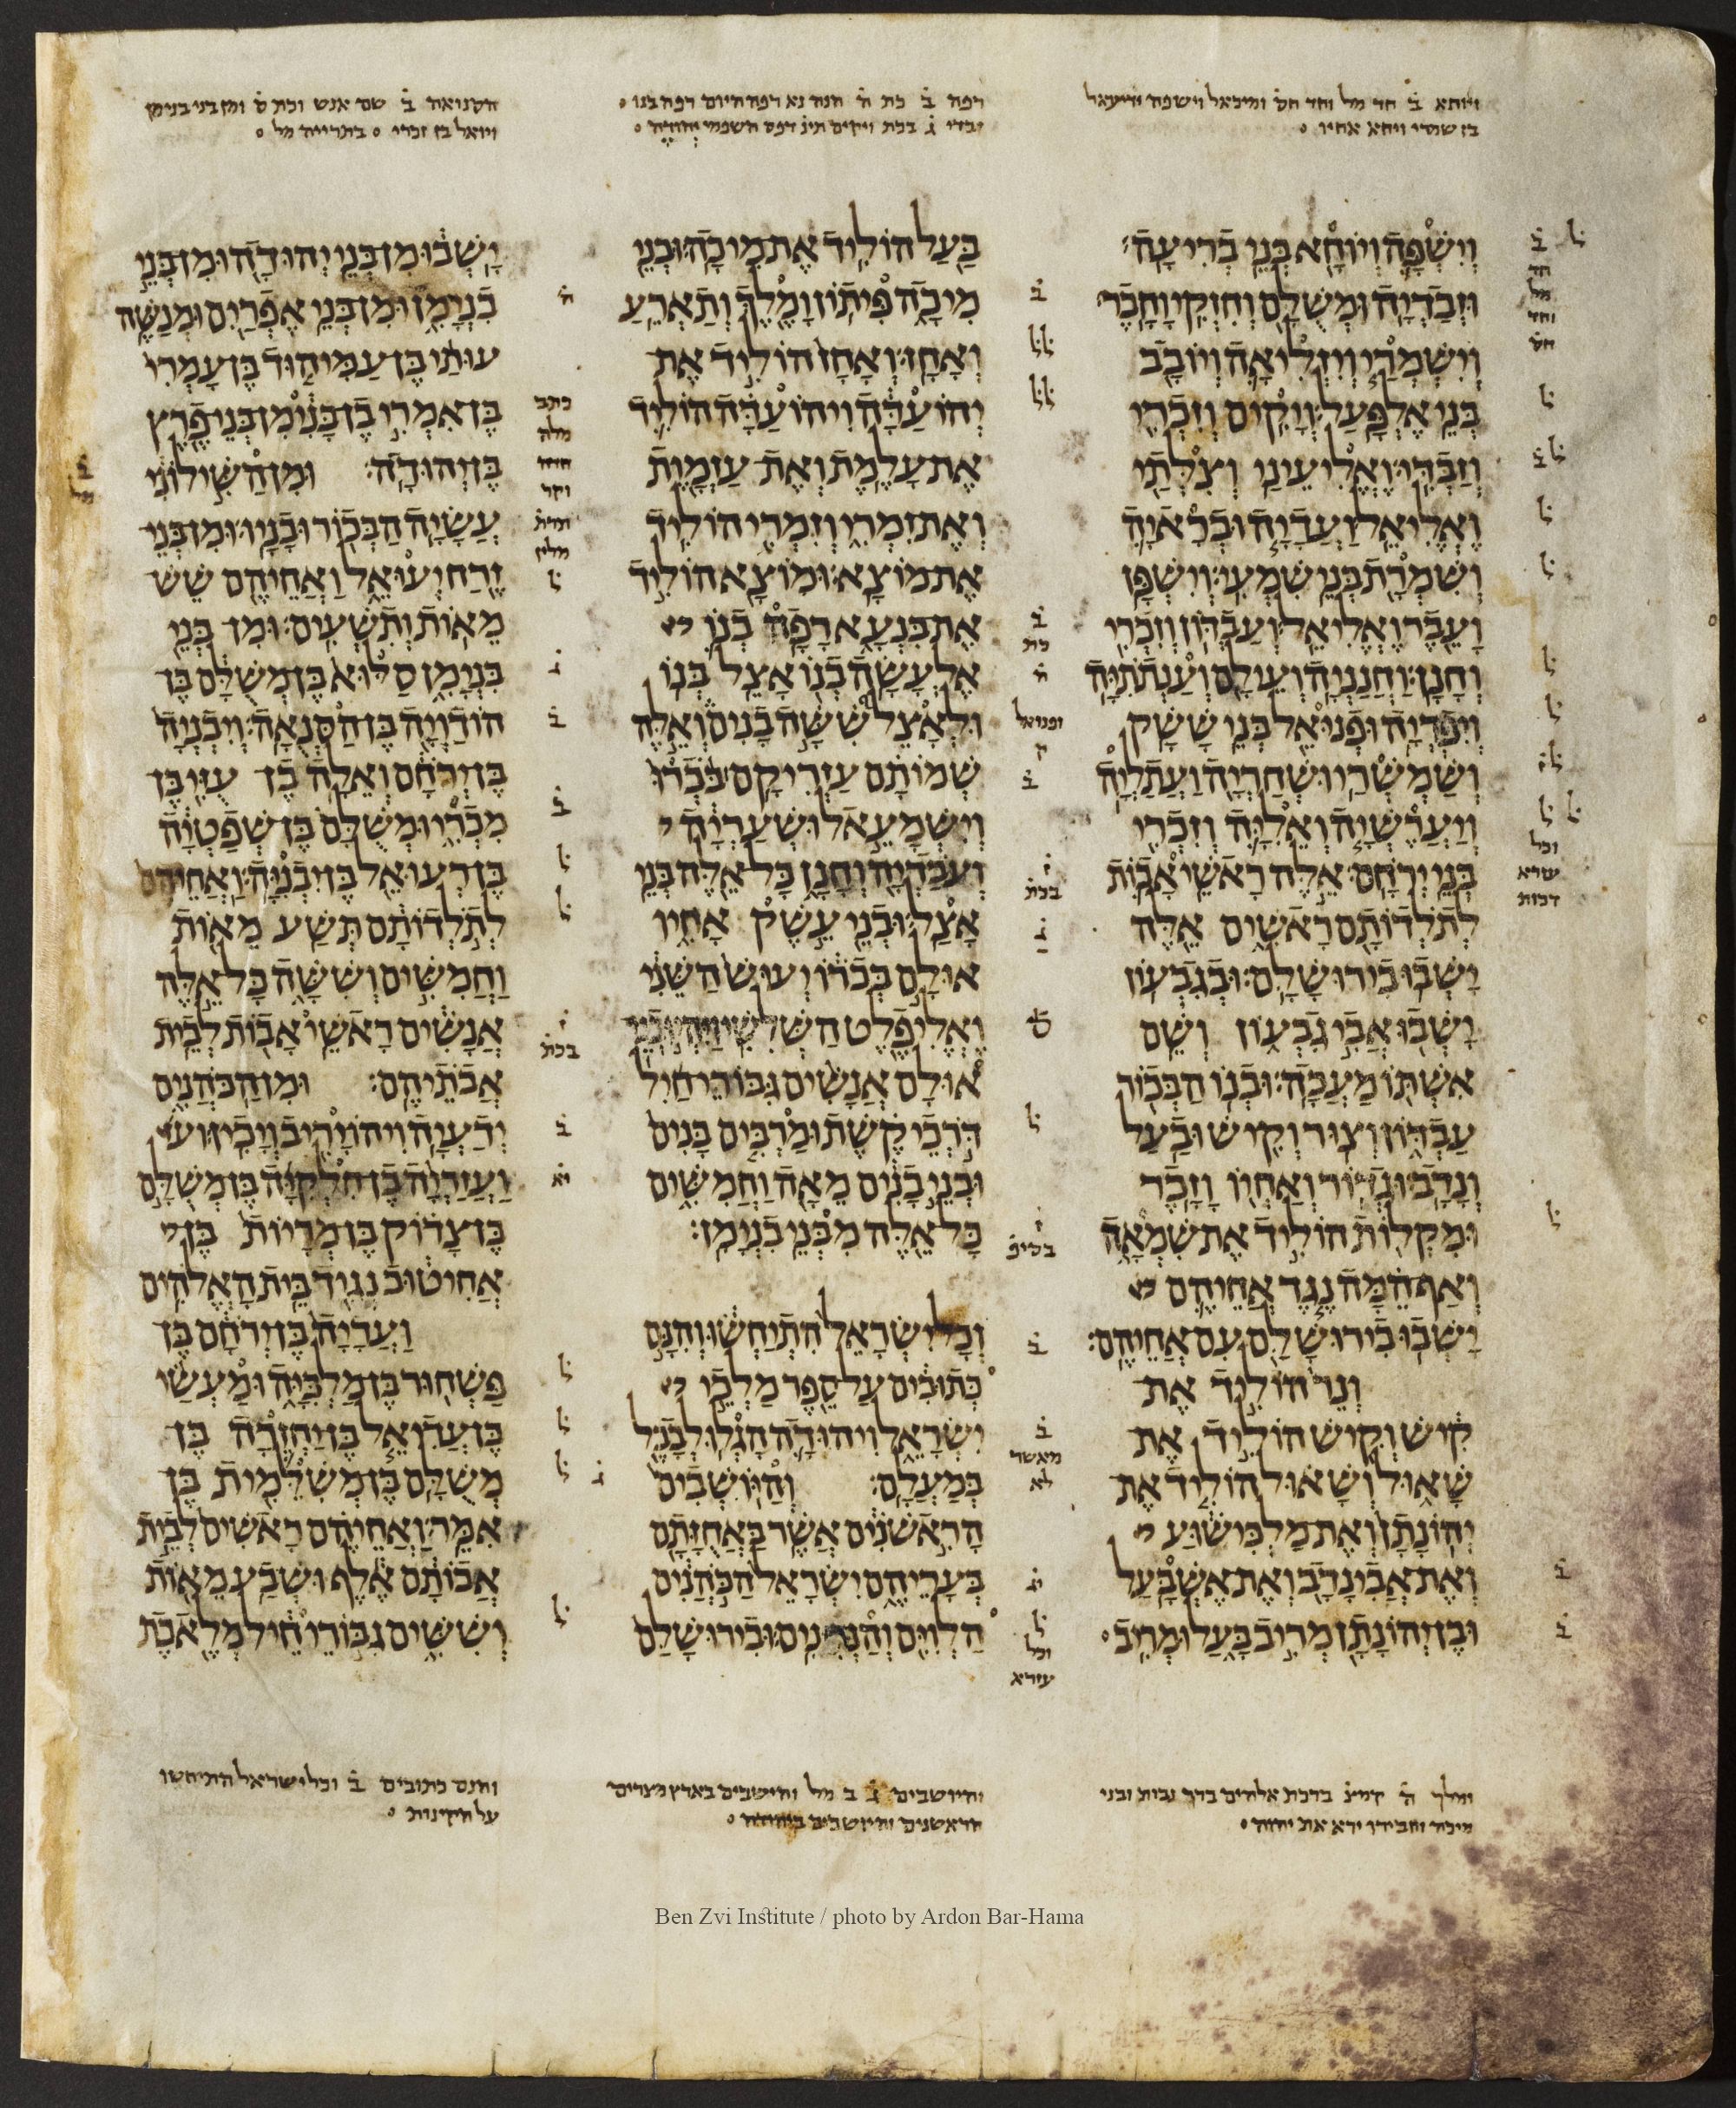 ויוחא ב חד מל וחד חס ומיכאל וישפה ידיעאל
בן שמרי ויחא אחיו
רפה ב כת ה הנה נא רפה היום רפה בנו
חסנואה ב שם אנש וכת ס ומן בני בנימן
ויואל בן זכרי בתרייה מל
וישפה ויוחא בני בריעה׃
וזבדיה ומשלם וחזקי וחבר׃
וישמרי ויזליאה ויובב
בני אלפעל׃ ויקים וזכרי
וזבדי׃ ואליעיני וצלתי
ואליאל׃ ועדיה ובראיה
ושמרת בני שמעי׃ וישפן
ועבר ואליאל׃ ועבדון וזכרי
וחנן׃ וחנניה ועילם וענתתיה
ויפדיה ופנואל בני ששק׃
ושמשרי ושחריה ועתליה׃
ויערשיה ואליה וזכרי
בני ירחם׃ אלה ראשי אבות
לתלדותם ראשים אלה
ישבו בירושלם׃ ובגבעון
ישבו אבי גבעון ושם
אשתו מעכה׃ ובנו הבכור
עבדון וצור וקיש ובעל
ונדב׃ וגדור ואחיו וזכר׃
ומקלות הוליד את שמאה
ואף המה נגד אחיהם
ישבו בירושלם עם אחיהם׃
ונר הוליד את
קיש וקיש הוליד את
שאול ושאול הוליד את
יהונתן ואת מלכישוע
ואת אבינדב ואת אשבעל׃
ובן יהונתן מריב בעל ומריב
בעל הוליד את מיכה׃ ובני
מיכה פיתון ומלך ותארע
ואחז׃ ואחז הוליד את
יהועדה ויהועדה הוליד
את עלמת ואת עזמות
ואת זמרי וזמרי הוליד
את מוצא׃ ומוצא הוליד
את בנעא רפה בנו
אלעשה בנו אצל בנו׃
ולאצל ששה בנים ואלה
שמותם עזריקם בכרו
וישמעאל ושעריה
ועבדיה וחנן כל אלה בני
אצל׃ ובני עשק אחיו
אולם בכרו יעוש השני
ואליפלט השלשי׃ ויהיו בני
אולם אנשים גבורי חיל
דרכי קשת ומרבים בנים
ובני בנים מאה וחמשים
כל אלה מבני בנימן׃
וכל ישראל התיחשו והנם
כתובים על ספר מלכי
ישראל ויהודה הגלו לבבל
במעלם׃ והיושבים
הראשנים אשר באחזתם
בעריהם ישראל הכהנים
הלוים והנתינים׃ ובירושלם
ישבו מן בני יהודה ומן בני
בנימן ומן בני אפרים ומנשה׃
עותי בן עמיהוד בן עמרי
בן אמרי בן בנימן בני פרץ
בן יהודה׃ ומן השילוני
עשיה הבכור ובניו׃ ומן בני
זרח יעואל ואחיהם שש
מאות ותשעים׃ ומן בני
בנימן סלוא בן משלם בן
הודויה בן הסנאה׃ ויבניה
בן ירחם ואלה בן עזי בן
מכרי ומשלם בן שפטיה
בן רעואל בן יבניה׃ ואחיהם
לתלדותם תשע מאות
וחמשים וששה כל אלה
אנשים ראשי אבות לבית
אבתיהם׃ ומן הכהנים
ידעיה ויהויריב ויכין׃
ועזריה בן חלקיה בן משלם
בן צדוק בן מריות בן
אחיטוב נגיד בית האלהים׃
ועדיה בן ירחם בן
פשחור בן מלכיה ומעשי
בן עדיאל בן יחזרה בן
משלם בן משלמית בן
אמר׃ ואחיהם ראשים לבית
אבותם אלף ושבע מאות
וששים גבורי חיל מלאכת
והיושבים ג ב מל והישבים בארץ מצרים
הראשנים והיושבים ביהודה
והנם כתובים ב וכל ישראל התיחשו
על הקינות
Ben Zvi Institute / photo by Ardon Bar-Hama